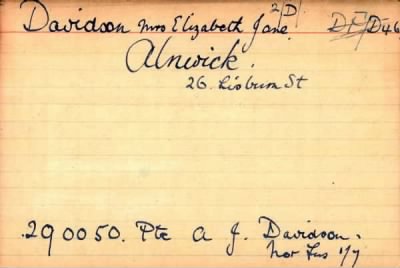 Davidson Mrs Elizabeth Jane. 2/D/ D46
Alnwick.
26. Lisburn St
290050. Pte A J. Davidson.
Nor Fus 1/7